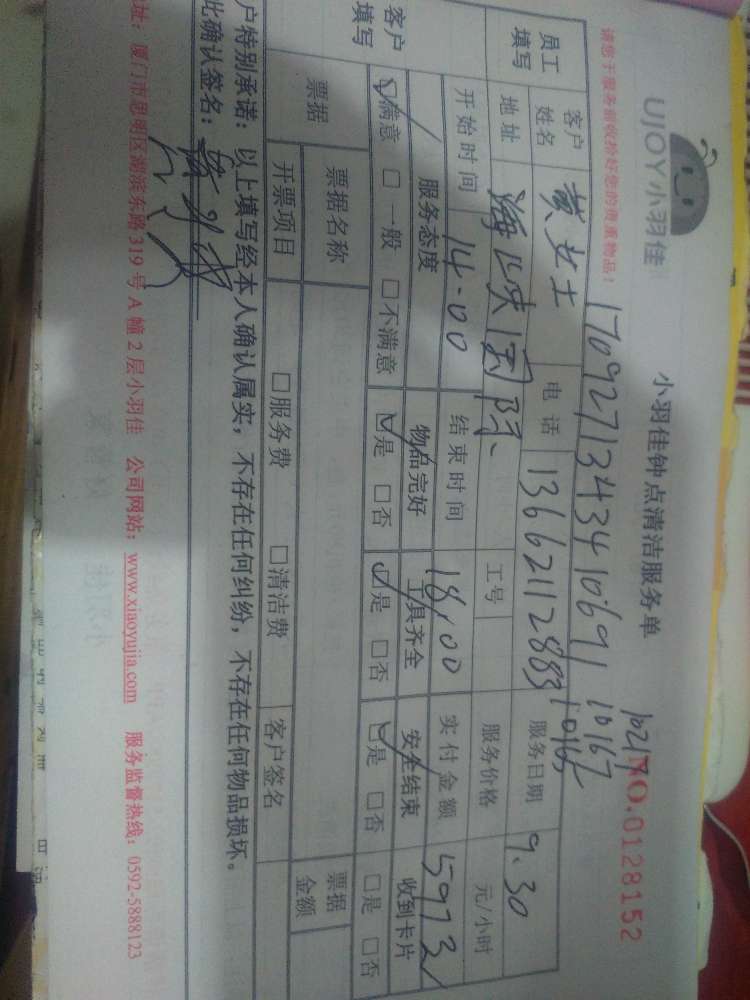 UJOY小羽佳
小羽佳钟点清洁服务单
NO.0128152
10217
请您于服务前收拾好您的贵重物品！
1709271343410691 10167
10165
员工填写 客户姓名 黄女士 电话 13662112883 服务日期 9.30
地址 海峡国际、 工号 服务价格 元/小时
开始时间 14:00 结束时间 18:00 实付金额
客户填写 服务态度 物品完好 工具齐全 安全结束 收到卡片
☑满意 □一般 □不满意 ☑是 □否 ☑是 □否 ☑是 □否 □是 □否
票据 票据名称 票据金额
开票项目 □服务费 □清洁费 客户签名
户特别承诺：以上填写经本人确认属实，不存在任何纠纷，不存在任何物品损坏。
此确认签名：
址：厦门市思明区湖滨东路319号A幢2层小羽佳 公司网站：www.xiaoyujia.com 服务监督热线：0592-5888123